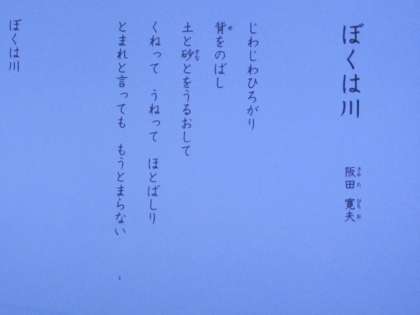 ぼくは川
阪田 寛夫
さかた ひろお
じわじわひろがり
背をのばし
せ
土と砂とをうるおして
すな
くねって うねって ほとばしり
とまれと言っても もうとまらない
ぼくは川